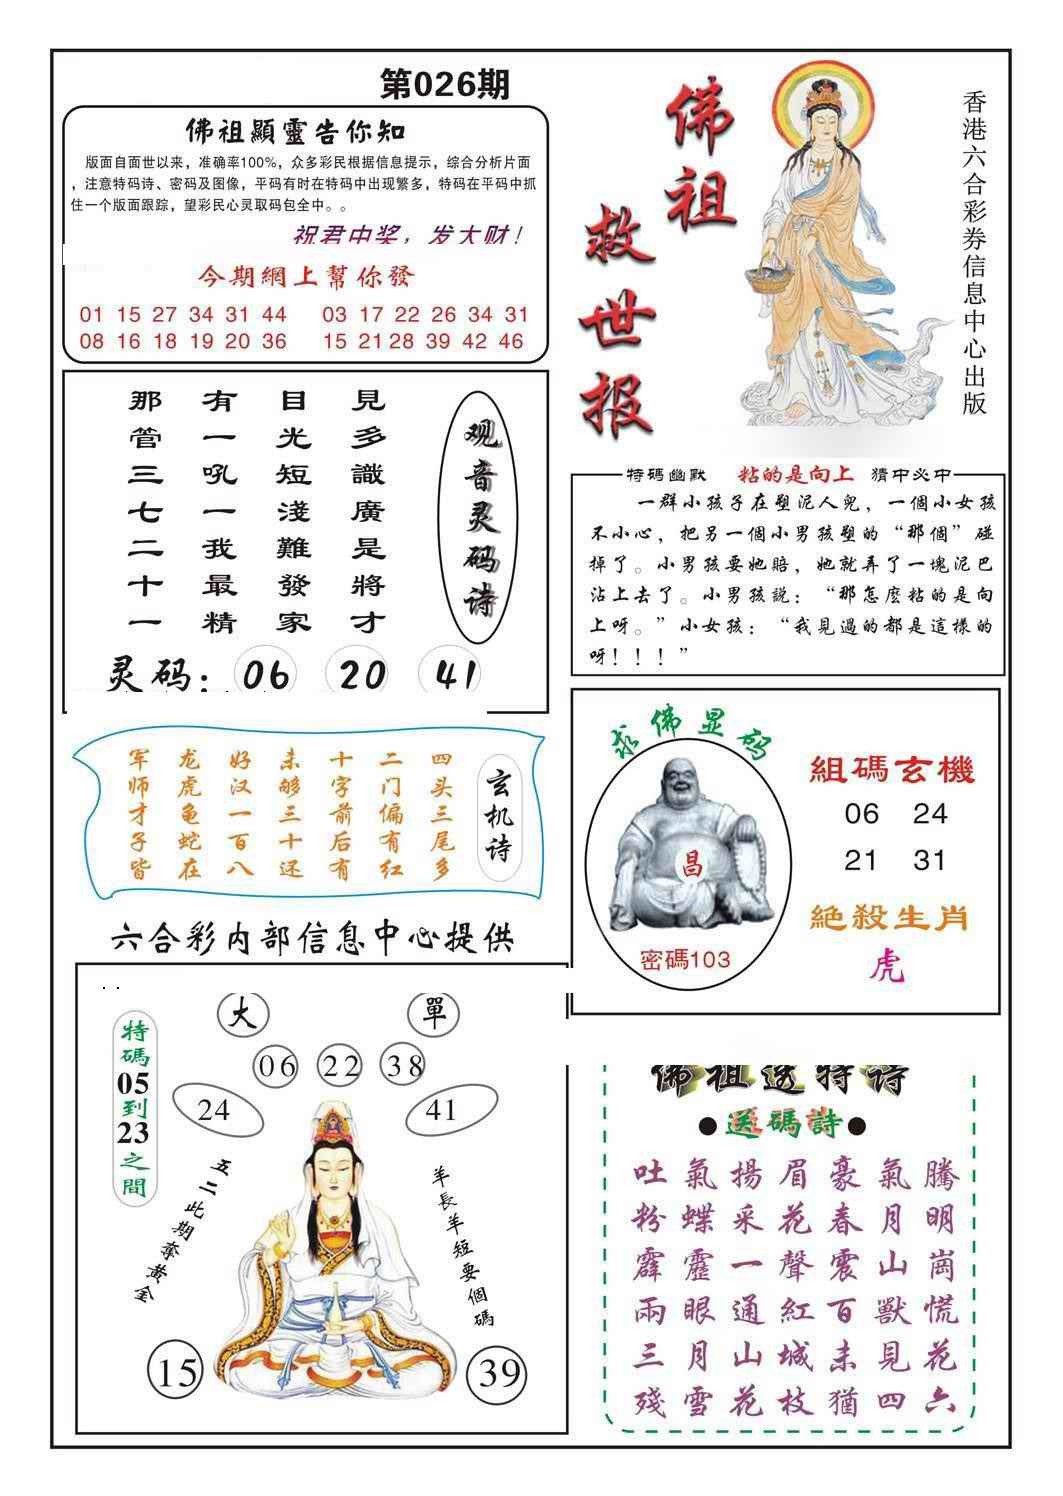 第026期
佛祖顯靈告你知
版面自面世以来，准确率100%，众多彩民根据信息提示，综合分析片面
，注意特码诗、密码及图像，平码有时在特码中出现繁多，特码在平码中抓
住一个版面跟踪，望彩民心灵取码包全中。。
祝君中奖，发大财！
今期網上幫你發
01 15 27 34 31 44 03 17 22 26 34 31
08 16 18 19 20 36 15 21 28 39 42 46
佛祖
救世报
香港六合彩券信息中心出版
观音灵码诗
見多識廣是將才
目光短淺難發家
有一吼一我最精
那管三七二十一
灵码：06 20 41
特碼幽默 粘的是向上 猜中必中
一群小孩子在塑泥人兒，一個小女孩
不小心，把另一個小男孩塑的“那個”碰
掉了。小男孩要她賠，她就弄了一塊泥巴
沾上去了。小男孩説：“那怎麼粘的是向
上呀。”小女孩：“我見過的都是這樣的
呀！！！”
玄机诗
四头三尾多
二门偏有红
十字前后有
未够三十还
好汉一百八
龙虎龟蛇在
军师才子皆
求佛显码
昌
密碼103
組碼玄機
06 24
21 31
絕殺生肖
虎
六合彩内部信息中心提供
特碼05到23之間
大 單
06 22 38
24 41
五二此期奪黄金
羊長羊短要個碼
15 39
佛祖送特诗
●送碼詩●
吐氣揚眉豪氣騰
粉蝶采花春月明
霹靂一聲震山崗
兩眼通紅百獸慌
三月山城未見花
殘雪花枝猶四六